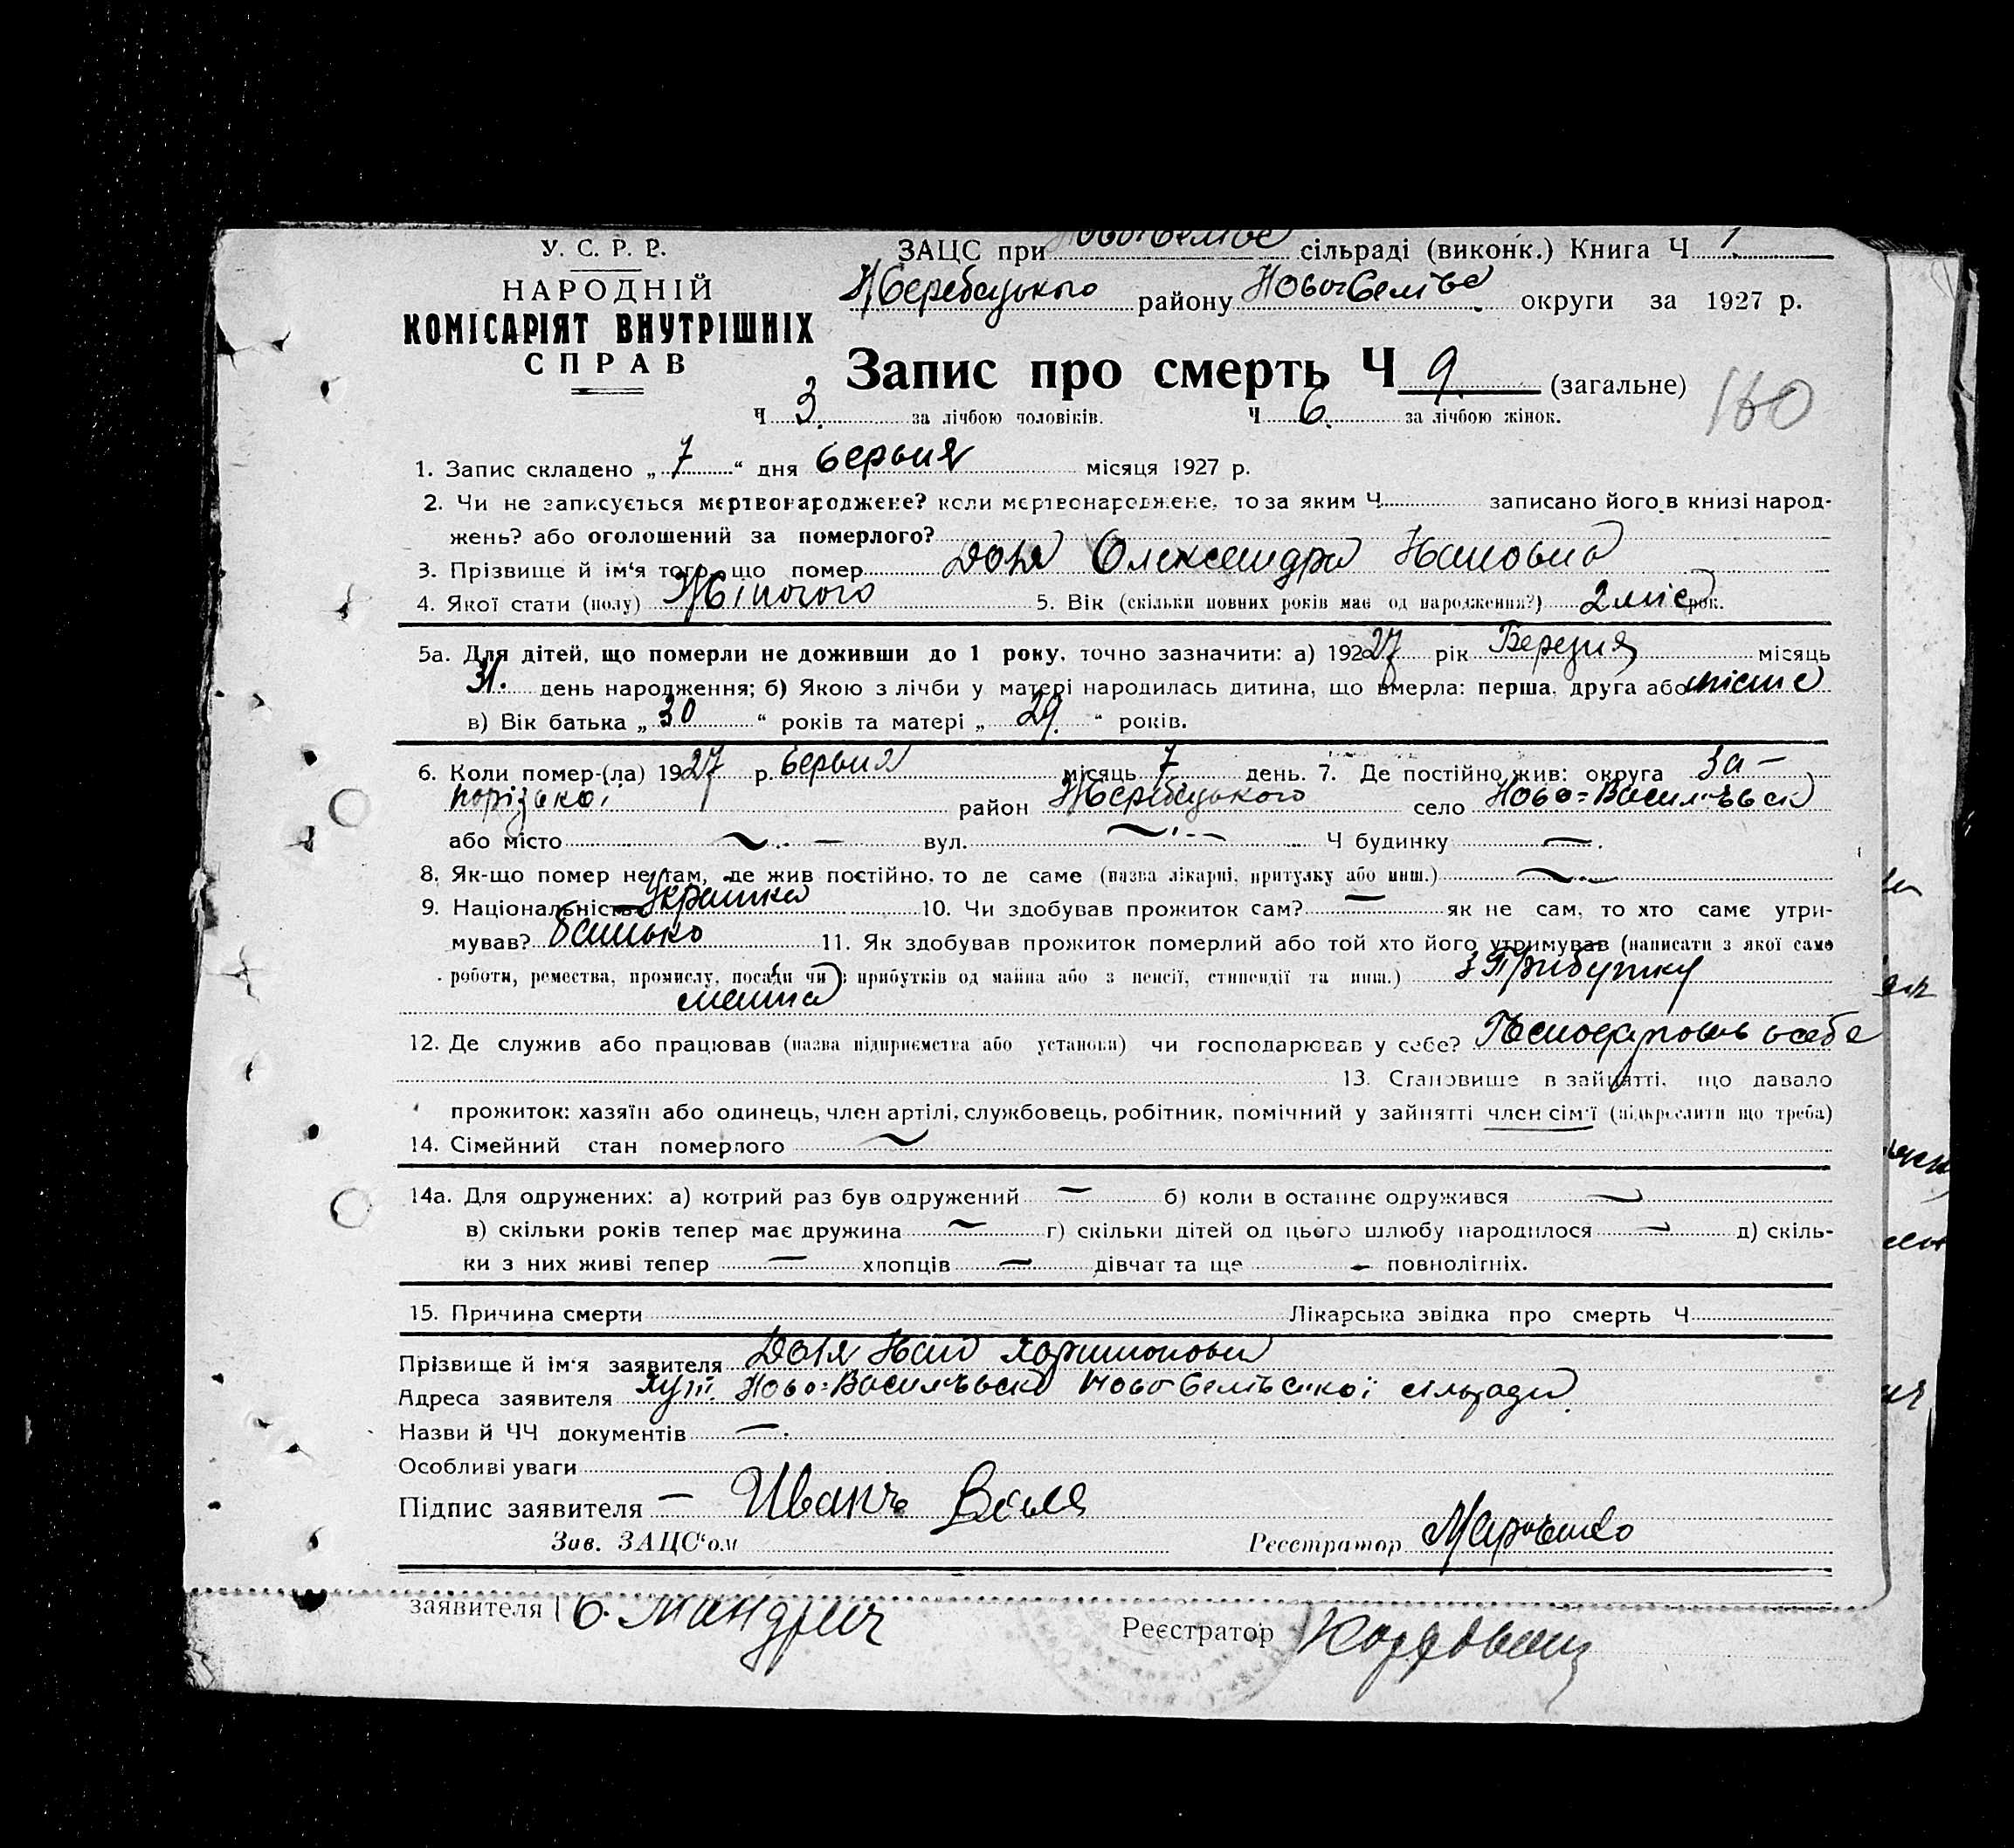 У. С. Р. Р.
НАРОДНІЙ
КОМІСАРІЯТ ВНУТРІШНІХ
СПРАВ
ЗАЦС при сільраді (виконк.) Книга Ч 1
Жеребецького району округи за 1927 р.
Запис про смерть Ч 9. (загальне)
160
Ч 3. за лічбою чоловіків. Ч 6. за лічбою жінок.
1. Запис складено „ 7 “ дня червня місяця 1927 р.
2. Чи не записується мертвонароджене? коли мертвонароджене, то за яким Ч записано його в книзі народ-
жень? або оголошений за померлого?
3. Прізвище й ім'я того, що помер Доля Олександра
4. Якої статі (полу) Жіночого 5. Вік (скільки повних років має од народження?) 2 міс рок.
5а. Для дітей, що померли не доживши до 1 року, точно зазначити: а) 19227 рік Березня місяць
31. день народження; б) Якою з лічби у матері народилась дитина, що вмерла: перша, друга або
в) Вік батька „ 30 “ років та матері „ 29. “ років.
6. Коли помер-(ла) 1927 р. червня місяць 7 день. 7. Де постійно жив: округа За-
порізької район Жеребецького село Ново-Васил
або місто ~ — вул. ~ — Ч будинку — .
8. Як-що помер не там, де жив постійно, то де саме (назва лікарні, притулку або инш.) ~
9. Національність Українка 10. Чи здобував прожиток сам? — як не сам, то хто саме утри-
мував? батько 11. Як здобував прожиток померлий або той хто його утримував (написати з якої саме
роботи, ремества, промислу, посади чи з прибутків од майна або з пенсії, стипендії та инш.) з прибутку
майна
12. Де служив або працював (назва підприємства або установи) чи господарював у себе? Господарював у себе
13. Становище в зайнятті, що давало
прожиток: хазяїн або одинець, член артілі, службовець, робітник, помічний у зайнятті член сім'ї (підкреслити що треба)
14. Сімейний стан померлого ~
14а. Для одружених: а) котрий раз був одружений — б) коли в останнє одружився ~
в) скільки років тепер має дружина ~ г) скільки дітей од цього шлюбу народилося — д) скіль-
ки з них живі тепер — хлопців — дівчат та ще - повнолітніх.
15. Причина смерти Лікарська звідка про смерть Ч
Прізвище й ім'я заявителя Доля
Адреса заявителя хут. Ново-Васил сільради
Назви й ЧЧ документів — .
Особливі уваги
Підпис заявителя — Иванъ
Зав. ЗАЦС“ом Реєстратор Марченко
заявителя Реєстратор